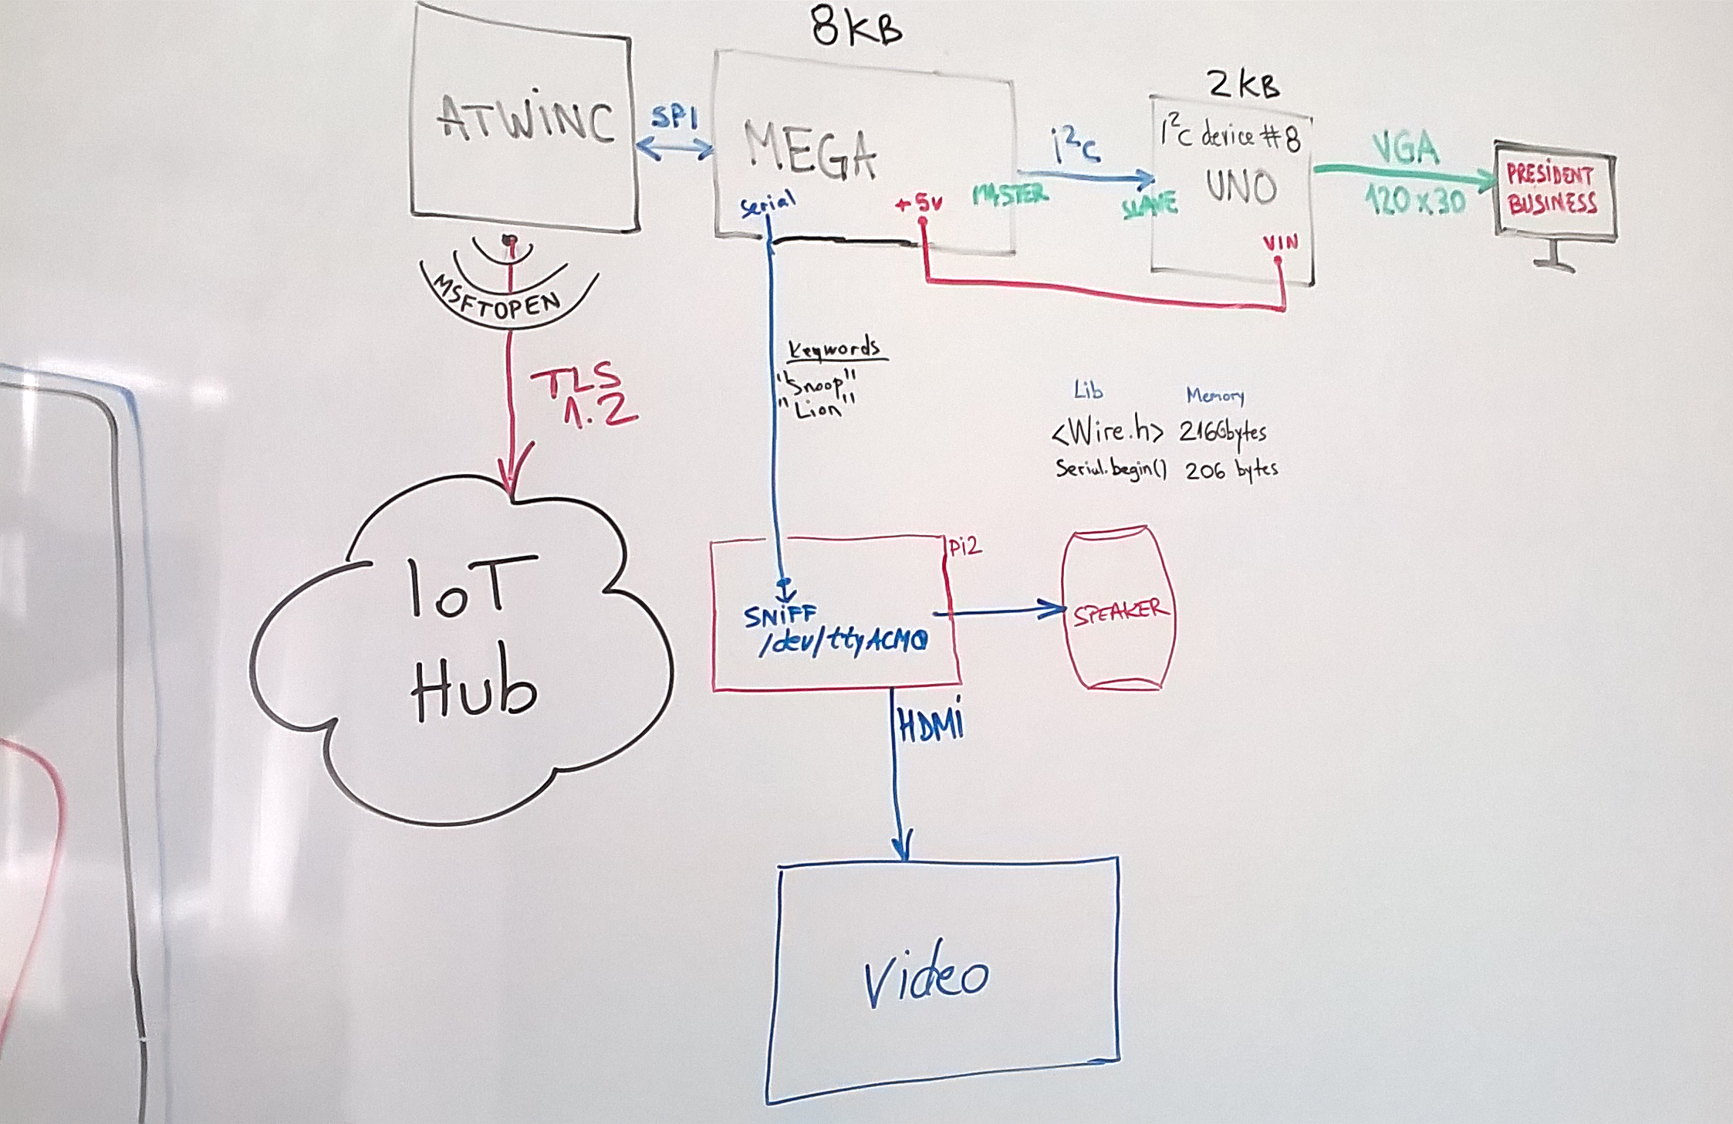 8KB
ATWINC
SPI
MEGA
serial
+5V
MASTER
I²C
2KB
I²C device #8
UNO
SLAVE
VIN
VGA
120x30
PRESIDENT
BUSINESS
MSFTOPEN
TLS
1.2
Keywords
"Snoop"
"Lion"
Lib Memory
<Wire.h> bytes
Serial.begin() 206 bytes
IoT
Hub
Pi2
SNIFF
/dev/ttyACM0
SPEAKER
HDMI
Video